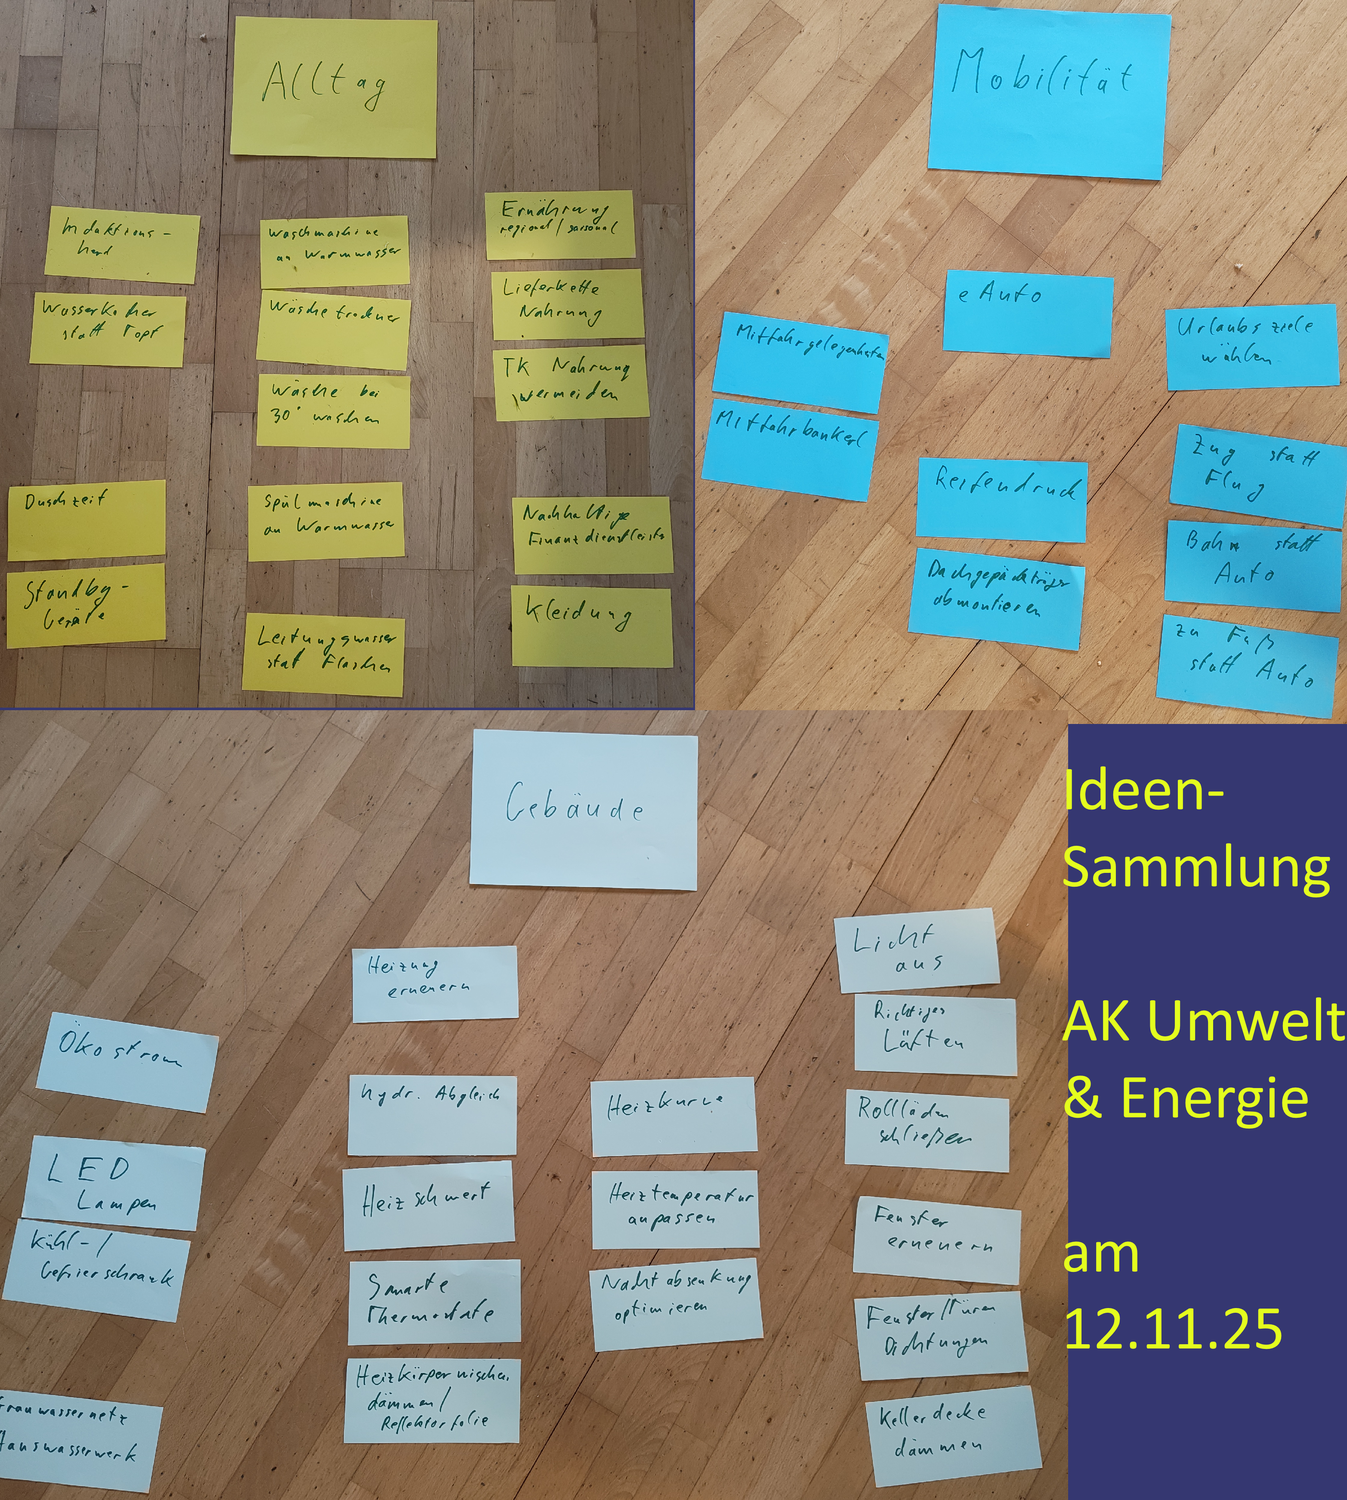 Alltag
Induktions-
herd
Wasserkocher
statt Topf
Duschzeit
Standby-
Geräte
Waschmaschine
an Warmwasser
Wäschetrockner
Wäsche bei
30° waschen
Spülmaschine
an Warmwasser
Leitungswasser
stat Flaschen
Ernährung
regional/saisonal
Lieferkette
Nahrung
TK Nahrung
vermeiden
Nachhaltige
Finanzdienstleister
Kleidung
Mobilität
Mitfahrgelegenheiten
Mitfahrbankerl
e Auto
Reifendruck
Dachgepäckträger
abmontieren
Urlaubsziele
wählen
Zug statt
Flug
Bahn statt
Auto
zu Fuß
statt Auto
Gebäude
Ökostrom
LED
Lampen
Kühl-/
Gefrierschrank
Grauwassernetz
Hauswasserwerk
Heizung
erneuern
hydr. Abgleich
Heizschwert
Smarte
Thermostate
Heizkörpernischen
dämmen/
Reflektorfolie
Heizkurve
Heiztemperatur
anpassen
Nachtabsenkung
optimieren
Licht
aus
Richtiges
Lüften
Rollläden
schließen
Fenster
erneuern
Fenster/Türen
Dichtungen
Kellerdecke
dämmen
Ideen-
Sammlung
AK Umwelt
& Energie
am
12.11.25